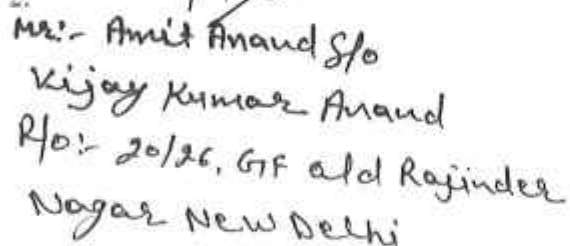 Mr:- Amit Anand S/o
Vijay Kumar Anand
R/o:- 20/26, GF old Rajinder
Nagar New Delhi